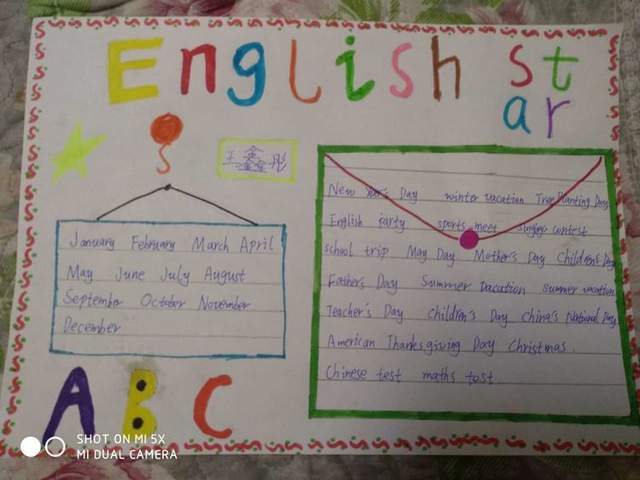 English St
ar
王鑫彤
January February March April
May June July August
September October November
December
New Year's Day winter vacation Tree Planting Day
English Party sports meet singing contest
school trip May Day Mother's Day Children's Day
Father's Day Summer vacation summer vacation
Teacher's Day Children's Day China's National Day
American Thanksgiving Day Christmas.
Chinese test maths test
A B C
SHOT ON MI 5X
MI DUAL CAMERA